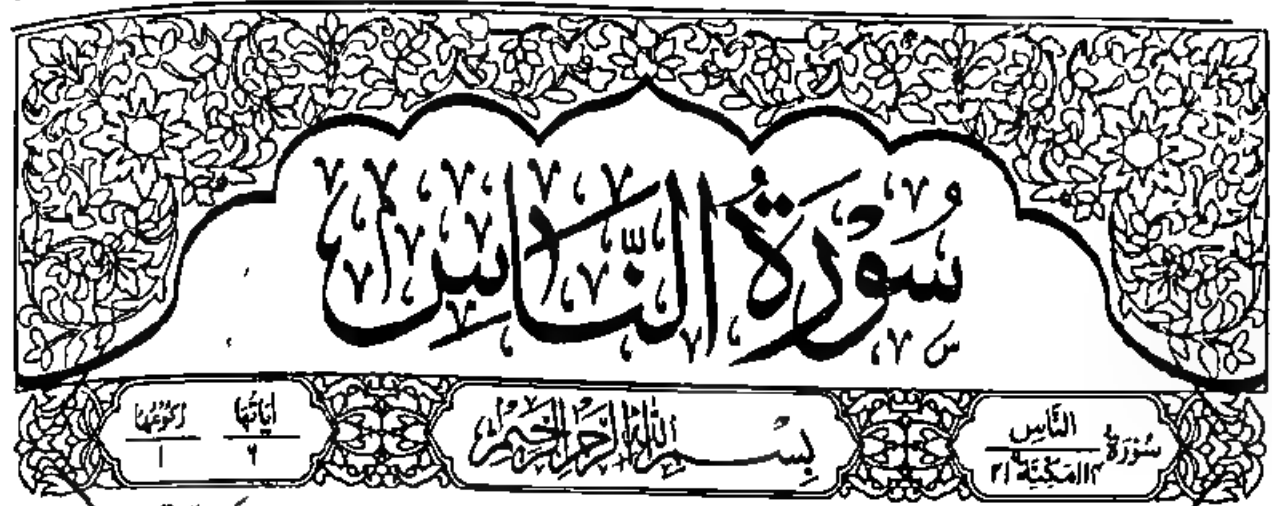 سُوْرَةُ النَّاسِ
سُوْرَةُ النَّاسِ
المَكِّيَّة ٢١
بِسْمِ اللّٰهِ الرَّحْمٰنِ الرَّحِيْمِ
اٰيَاتُهَا
٦
رُكُوْعُهَا
١